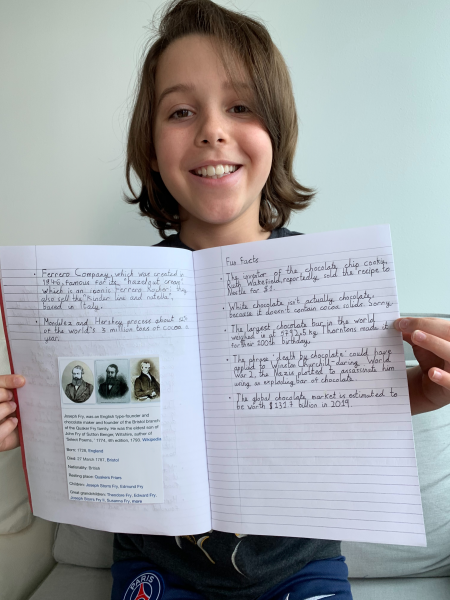 • Ferrero Company, which was created in
1946, famous for its "hazelnut cream"
which is an iconic Ferrero Rocher. They
also sell the "Kinder line and nutella",
based in Italy.
• Mondelez and Hershey process about 1/3
of the world's 3 million tons of cocoa a
year.
Joseph Fry, was an English type-founder and
chocolate maker and founder of the Bristol branch
of the Quaker Fry family. He was the eldest son of
John Fry of Sutton Benger, Wiltshire, author of
'Select Poems,' 1774, 4th edition, 1793. Wikipedia
Born: 1728, England
Died: 27 March 1787, Bristol
Nationality: British
Resting place: Quakers Friars
Children: Joseph Storrs Fry, Edmund Fry
Great-grandchildren: Theodore Fry, Edward Fry,
Joseph Storrs Fry II, Susanna Fry, more
Fun Facts
• The inventor of the chocolate chip cooky,
Ruth Wakefield, reportedly sold the recipe to
Nestle for $1.
• White chocolate isn't actually chocolate,
because it doesn't contain cocoa solids. Sorry.
• The largest chocolate bar in the world
weighed in at 5792.5 kg. Thorntons made it
for their 100th birthday.
• The phrase "death by chocolate" could have
applied to Winston Churchill: during World
War 2, the Nazis plotted to assassinate him
using an exploding bar of chocolate.
• The global chocolate market is estimated to
be worth $131.7 billion in 2019.
PARIS